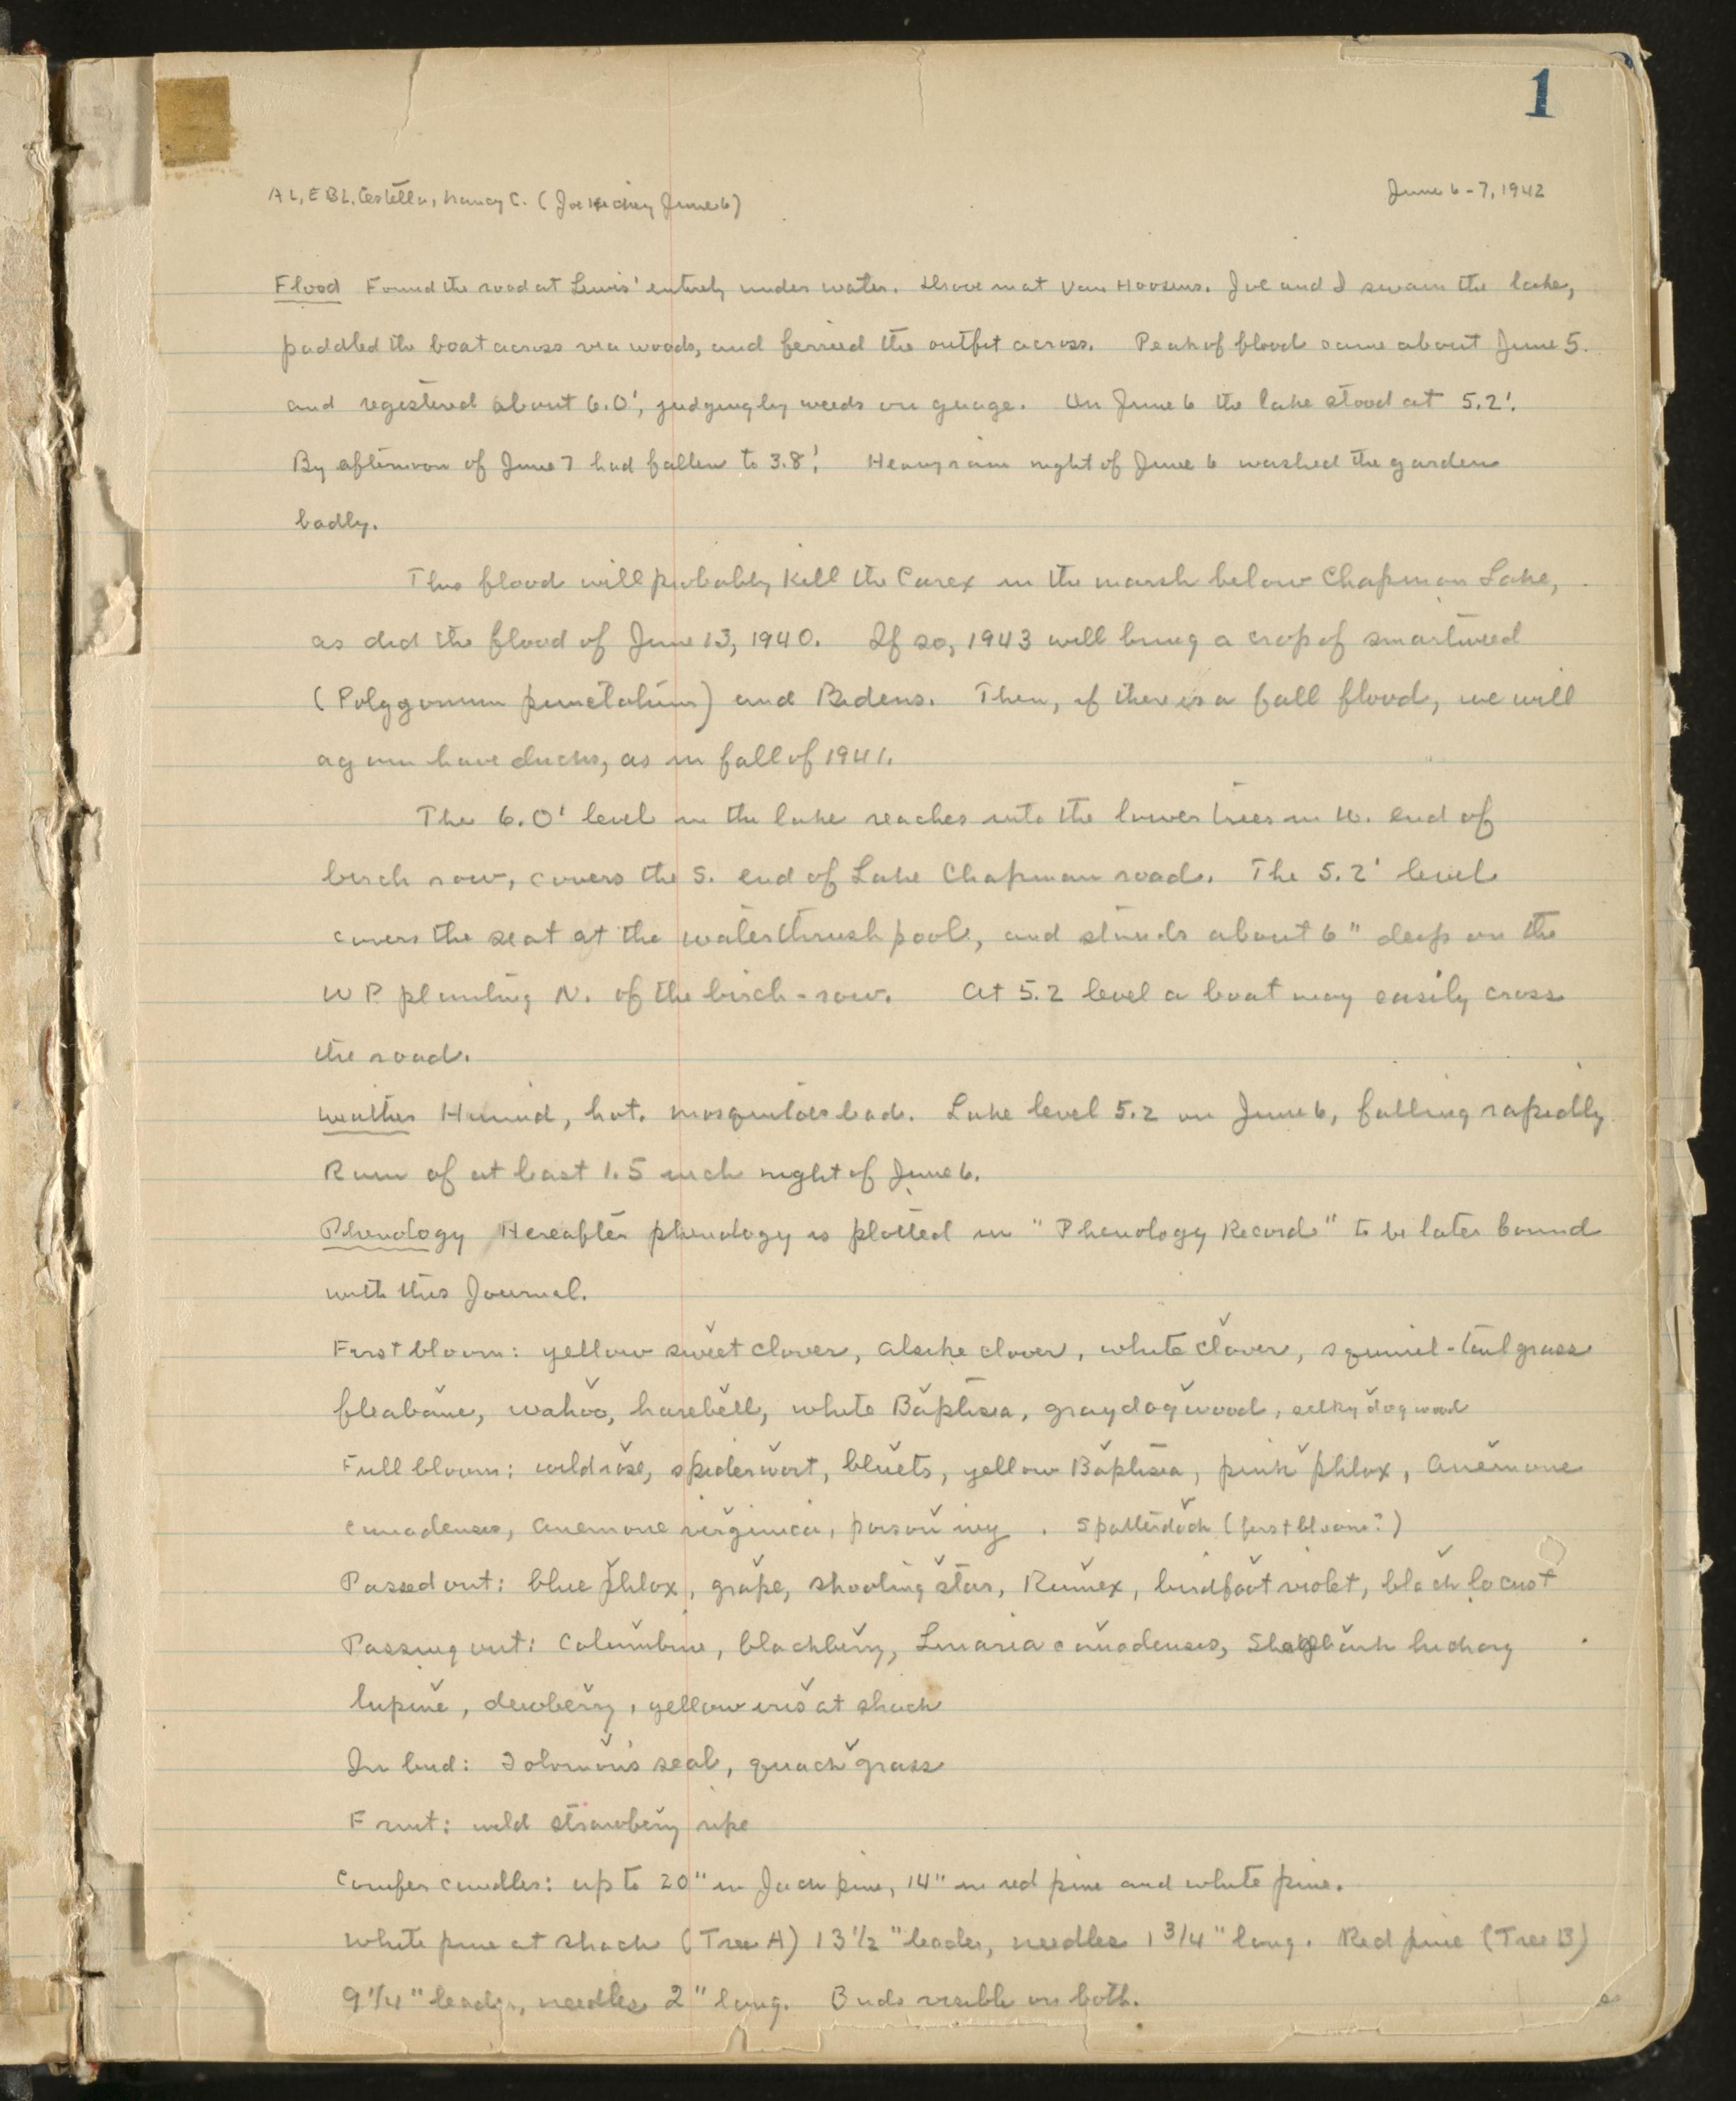 1
AL, EBL, Estella, Nancy C. (Joe Hickey June 6)
June 6-7, 1942
Flood Found the road at Lewis' entirely under water. Drove in at Van Hoosens. Joe and I swam the lake,
paddled the boat across via woods, and ferried the outfit across. Peak of flood came about June 5
and registered about 6.0', judging by weeds on guage. On June 6 the lake stood at 5.2'.
By afternoon of June 7 had fallen to 3.8'. Heavy rain night of June 6 washed the garden
badly.
This flood will probably kill the Carex in the marsh below Chapman Lake,
as did the flood of June 13, 1940. If so, 1943 will bring a crop of smartweed
(Polygonum punctatum) and Bidens. Then, if there is a fall flood, we will
again have ducks, as in fall of 1941.
The 6.0' level in the lake reaches into the lower trees in W. end of
birch row, covers the S. end of Lake Chapman road. The 5.2' level
covers the seat at the waterthrush pool, and stands about 6" deep on the
WP planting N. of the birch-row. At 5.2 level a boat may easily cross
the road.
Weather Humid, hot. Mosquitoes bad. Lake level 5.2 on June 6, falling rapidly
Rain of at least 1.5 inch night of June 6.
Phenology Hereafter phenology is plotted in "Phenology Record" to be later bound
with this Journal.
First bloom: yellow sweet clover, alsike clover, white clover, squirrel-tail grass
fleabane, wahoo, harebell, white Baptisia, gray dogwood, silky dogwood
Full bloom: wild rose, spiderwort, bluets, yellow Baptisia, pink phlox, Anemone
canadensis, Anemone virginica, poison ivy. Spatterdock (first bloom?)
Passed out: blue phlox, grape, shooting star, Rumex, birdfoot violet, black locust
Passing out: Columbine, blackberry, Linaria canadensis, Shagbark hickory
lupine, dewberry, yellow iris at shack
In bud: Solomon's seal, quack grass
Fruit: wild strawberry ripe
Conifer candles: up to 20" in Jack pine, 14" in red pine and white pine.
White pine at shack (Tree A) 13 1/2" leader, needles 1 3/4" long. Red pine (Tree B)
9 1/4" leader, needles 2" long. Buds visible on both.